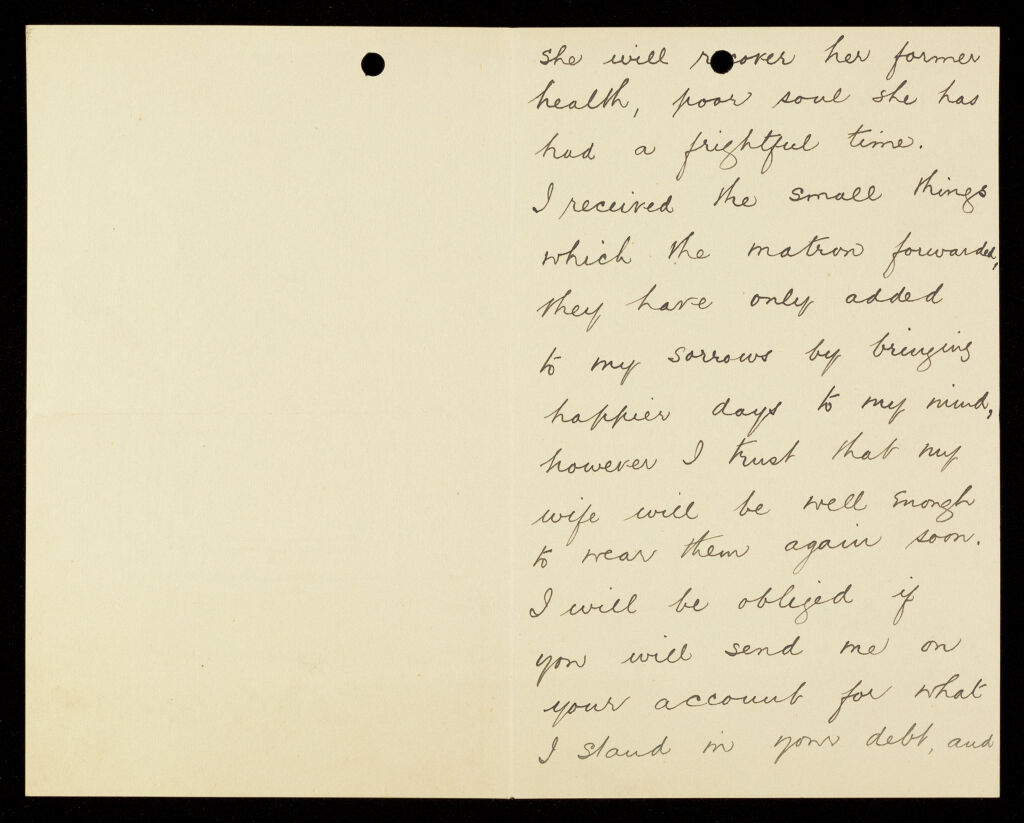 she will recover her former
health, poor soul she has
had a frightful time.
I received the small things
which the matron forwarded,
they have only added
to my sorrows by bringing
happier days to my mind,
however I trust that my
wife will be well enough
to wear them again soon.
I will be obliged if
you will send me on
your account for what
I stand in your debt, and